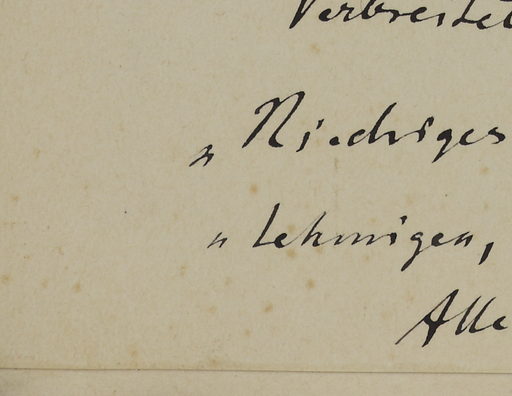 Verbreitet
„ Niedriges
" lehmigen,
Alle